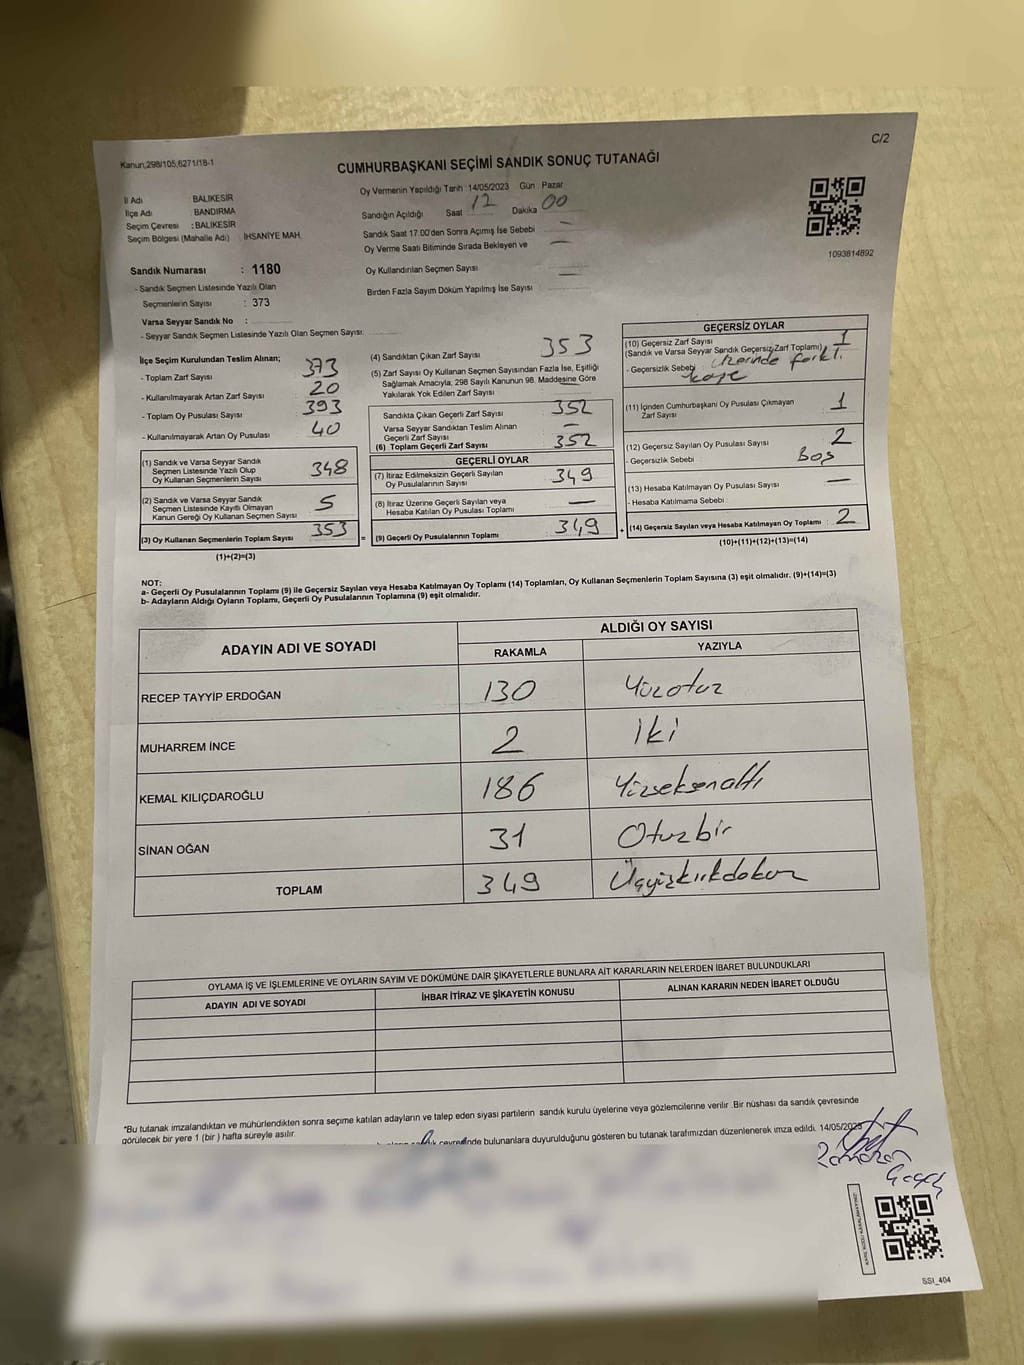 C/2
Kanun;298/105,6271/18-1
CUMHURBAŞKANI SEÇİMİ SANDIK SONUÇ TUTANAĞI
İl Adı BALIKESİR
İlçe Adı BANDIRMA
Seçim Çevresi : BALIKESİR
Seçim Bölgesi (Mahalle Adı) İHSANİYE MAH.
Oy Vermenin Yapıldığı Tarih 14/05/2023 Gün Pazar
Sandığın Açıldığı Saat 12 Dakika 00
Sandık Saat 17:00'den Sonra Açımış İse Sebebi —
Oy Verme Saati Bitiminde Sırada Bekleyen ve —
Oy Kullandırılan Seçmen Sayısı —
Birden Fazla Sayım Döküm Yapılmış İse Sayısı
1093814892
Sandık Numarası : 1180
- Sandık Seçmen Listesinde Yazılı Olan
Seçmenlerin Sayısı : 373
Varsa Seyyar Sandık No :
- Seyyar Sandık Seçmen Listesinde Yazılı Olan Seçmen Sayısı:
İlçe Seçim Kurulundan Teslim Alınan;
- Toplam Zarf Sayısı 373
- Kullanılmayarak Artan Zarf Sayısı 20
- Toplam Oy Pusulası Sayısı 393
- Kullanılmayarak Artan Oy Pusulası 40
(1) Sandık ve Varsa Seyyar Sandık
Seçmen Listesinde Yazılı Olup
Oy Kullanan Seçmenlerin Sayısı 348
(2) Sandık ve Varsa Seyyar Sandık
Seçmen Listesinde Kayıtlı Olmayan
Kanun Gereği Oy Kullanan Seçmen Sayısı 5
(3) Oy Kullanan Seçmenlerin Toplam Sayısı 353 =
(1)+(2)=(3)
(4) Sandıktan Çıkan Zarf Sayısı 353
(5) Zarf Sayısı Oy Kullanan Seçmen Sayısından Fazla İse, Eşitliği
Sağlamak Amacıyla, 298 Sayılı Kanunun 98. Maddesine Göre
Yakılarak Yok Edilen Zarf Sayısı —
Sandıkta Çıkan Geçerli Zarf Sayısı 352
Varsa Seyyar Sandıktan Teslim Alınan
Geçerli Zarf Sayısı —
(6) Toplam Geçerli Zarf Sayısı 352
GEÇERLİ OYLAR
(7) İtiraz Edilmeksizin Geçerli Sayılan
Oy Pusulalarının Sayısı 349
(8) İtiraz Üzerine Geçerli Sayılan veya
Hesaba Katılan Oy Pusulası Toplamı —
(9) Geçerli Oy Pusulalarının Toplamı 349 +
GEÇERSİZ OYLAR
(10) Geçersiz Zarf Sayısı 1
(Sandık ve Varsa Seyyar Sandık Geçersiz Zarf Toplamı)
- Geçersizlik Sebebi üzerinde farklı
kaşe
(11) İçinden Cumhurbaşkanı Oy Pusulası Çıkmayan
Zarf Sayısı 1
(12) Geçersiz Sayılan Oy Pusulası Sayısı 2
- Geçersizlik Sebebi Boş
(13) Hesaba Katılmayan Oy Pusulası Sayısı —
- Hesaba Katılmama Sebebi
(14) Geçersiz Sayılan veya Hesaba Katılmayan Oy Toplamı 2
(10)+(11)+(12)+(13)=(14)
NOT:
a- Geçerli Oy Pusulalarının Toplamı (9) ile Geçersiz Sayılan veya Hesaba Katılmayan Oy Toplamı (14) Toplamları, Oy Kullanan Seçmenlerin Toplam Sayısına (3) eşit olmalıdır. (9)+(14)=(3)
b- Adayların Aldığı Oyların Toplamı, Geçerli Oy Pusulalarının Toplamına (9) eşit olmalıdır.
ADAYIN ADI VE SOYADI ALDIĞI OY SAYISI
RAKAMLA YAZIYLA
RECEP TAYYİP ERDOĞAN 130 Yüzotuz
MUHARREM İNCE 2 iki
KEMAL KILIÇDAROĞLU 186 Yüzseksenaltı
SİNAN OĞAN 31 Otuzbir
TOPLAM 349 Üçyüzkırkdokuz
OYLAMA İŞ VE İŞLEMLERİNE VE OYLARIN SAYIM VE DÖKÜMÜNE DAİR ŞİKAYETLERLE BUNLARA AİT KARARLARIN NELERDEN İBARET BULUNDUKLARI
ADAYIN ADI VE SOYADI İHBAR İTİRAZ VE ŞİKAYETİN KONUSU ALINAN KARARIN NEDEN İBARET OLDUĞU
*Bu tutanak imzalandıktan ve mühürlendikten sonra seçime katılan adayların ve talep eden siyasi partilerin sandık kurulu üyelerine veya gözlemcilerine verilir .Bir nüshası da sandık çevresinde
görülecek bir yere 1 (bir ) hafta süreyle asılır.
çevresinde bulunanlara duyurulduğunu gösteren bu tutanak tarafımızdan düzenlenerek imza edildi. 14/05/2023
Ramazan
SSI_404